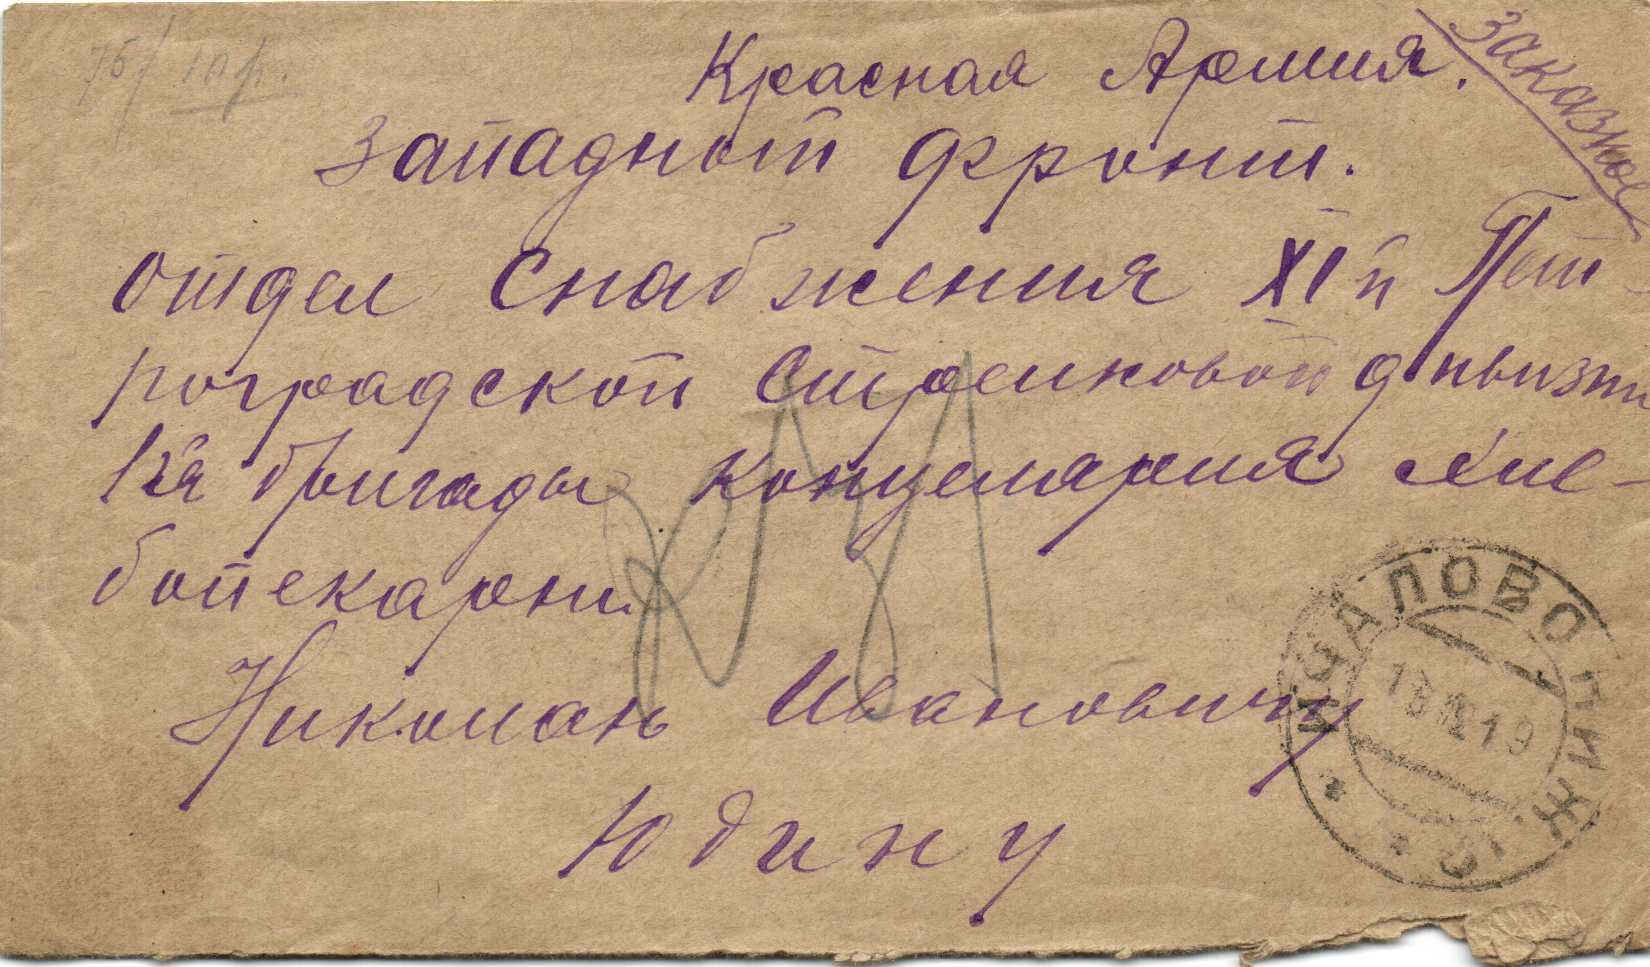 Заказное
Красная Армия.
Западнот фронт.
отдел Снабжения XIй Пет-
роградской Стрелковой дивьизии
1ья бригады концелярия хле-
бопекарни.
Николаю Ивановичу
Юдину
ИЦАЛОВО НИЖ.